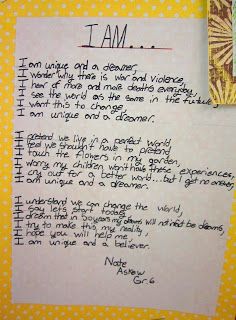 I AM...
I am unique and a dreamer,
I wonder why there is war and violence,
I hear of more and more deaths everyday,
I see the world as the same in the future,
I want this to change,
I am unique and a dreamer.
I pretend we live in a perfect world,
I feel we shouldn't have to pretend,
I touch the flowers in my garden,
I worry my children wont have these experiences,
I cry out for a better world...but I get no answer,
I am unique and a dreamer.
I understand we can change the world,
I say lets start today,
I dream that in years my dreams will not need be dreams,
I try to make this my reality,
I hope you will help me,
I am unique and a believer.
Nate
Gr.6